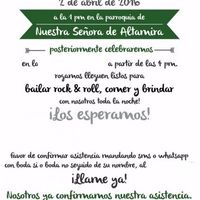 2 de abril de 2016
a la 1 pm en la parroquia de
Nuestra Señora de Altamira
posteriormente celebraremos
en la a partir de las 4 pm.
rogamos lleguen listos para
bailar rock & roll, comer y brindar
con nosotros toda la noche!
¡Los esperamos!
favor de confirmar asistencia mandando sms o whatsapp
con boda si o boda no seguido de su nombre, al
¡llame ya!
Nosotros ya confirmamos nuestra asistencia.